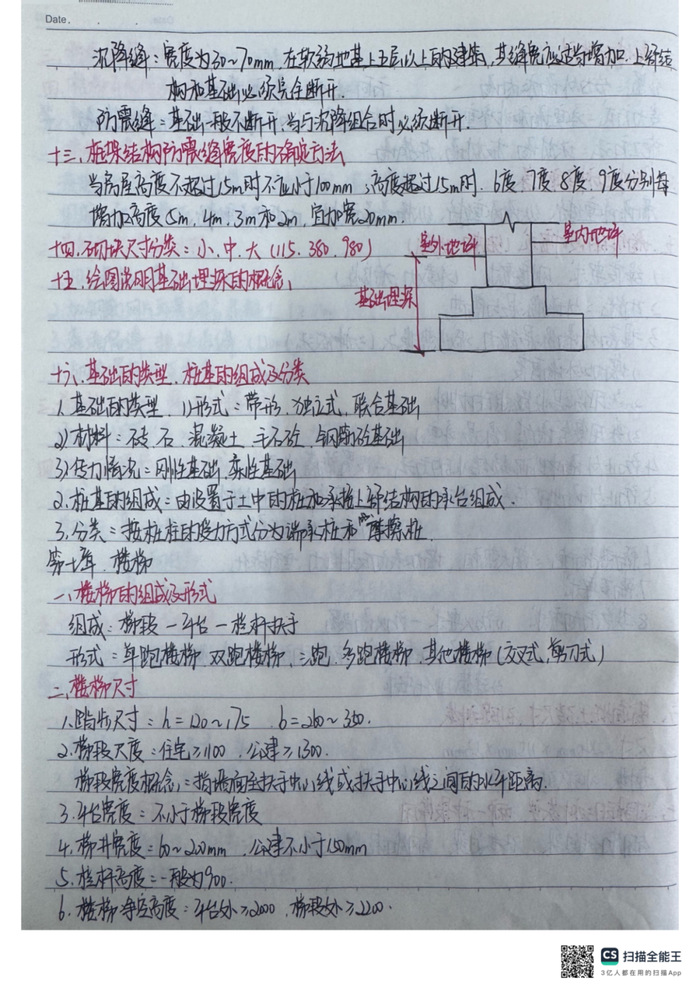 Date.
沉降缝：宽度为30~70mm，在软弱地基上五层以上的建筑，其缝宽应适当增加，上部结
构和基础必须完全断开.
防震缝：基础一般不断开，当与沉降组合时必须断开.
十三、框架结构防震缝宽度的确定方法
当房屋高度不超过15m时不应小于100mm；高度超过15m时，6度、7度、8度、9度分别每
增加高度5m，4m，3m和2m，宜加宽20mm.
十四、砌块尺寸分类：小、中、大（115、380、980）
室外地坪
室内地坪
十五、绘图说明基础埋深的概念：
基础埋深
十六、基础的类型、桩基的组成及分类
1、基础的类型，1)形式：带形、独立式、联合基础
2)材料：砖、石、混凝土、毛石砼、钢筋砼基础
3)受力情况：刚性基础、柔性基础
2、桩基的组成：由设置于土中的桩和承接上部结构的承台组成.
3、分类：按桩柱的受力方式分为端承桩和摩擦桩.
第七章、楼梯
一、楼梯的组成及形式
组成：梯段－平台－栏杆扶手
形式：单跑楼梯、双跑楼梯、三跑、多跑楼梯、其他楼梯（交叉式，剪刀式）
二、楼梯尺寸
1、踏步尺寸：h=120~175 b=260~350.
2、梯段尺度：住宅≥1100，公建≥1300.
梯段宽度概念：指墙面至扶手中心线或扶手中心线之间的水平距离.
3、平台宽度：不小于梯段宽度
4、梯井宽度：60~200mm，公建不小于150mm
5、栏杆高度：一般为900.
6、楼梯净空高度：平台处≥2000，梯段处≥2200.
CS 扫描全能王
3亿人都在用的扫描App